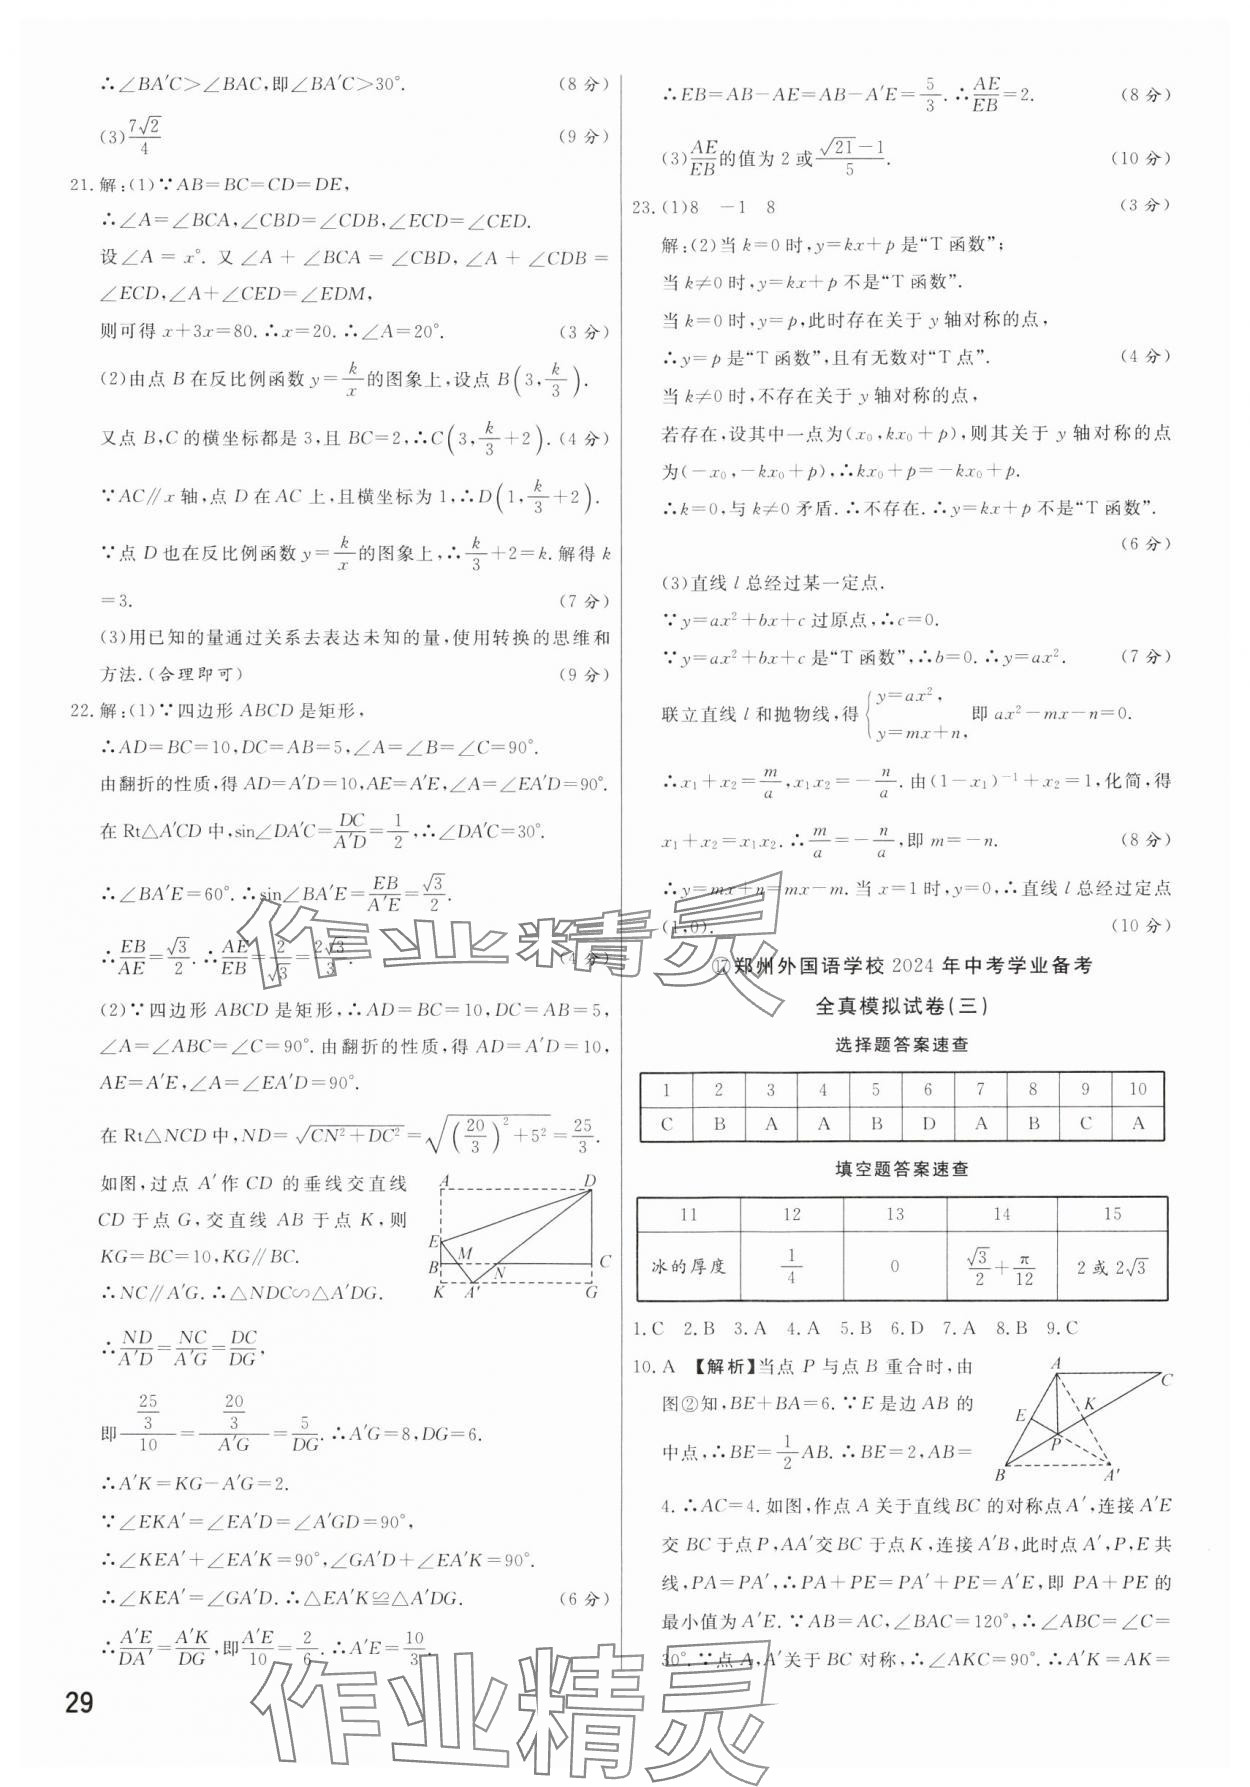 ∴∠BA′C>∠BAC,即∠BA′C>30°. (8 分)
(3)7√2/4 (9 分)
21.解:(1)∵AB=BC=CD=DE,
∴∠A=∠BCA,∠CBD=∠CDB,∠ECD=∠CED.
设∠A=x°.又∠A+∠BCA=∠CBD,∠A+∠CDB=
∠ECD,∠A+∠CED=∠EDM,
则可得 x+3x=80.∴x=20.∴∠A=20°. (3 分)
(2)由点 B 在反比例函数 y=k/x的图象上,设点 B(3,k/3).
又点 B,C 的横坐标都是 3,且 BC=2,∴C(3,k/3+2).(4 分)
∵AC∥x 轴,点 D 在 AC 上,且横坐标为 1,∴D(1,k/3+2).
∵点 D 也在反比例函数 y=k/x的图象上,∴k/3+2=k.解得 k
=3. (7 分)
(3)用已知的量通过关系去表达未知的量,使用转换的思维和
方法.(合理即可) (9 分)
22.解:(1)∵四边形 ABCD 是矩形,
∴AD=BC=10,DC=AB=5,∠A=∠B=∠C=90°.
由翻折的性质,得 AD=A′D=10,AE=A′E,∠A=∠EA′D=90°.
在 Rt△A′CD 中,sin∠DA′C=DC/A′D=1/2,∴∠DA′C=30°.
∴∠BA′E=60°.∴sin∠BA′E=EB/A′E=√3/2.
∴EB/AE=√3/2.∴AE/EB=2/√3=2√3/3. (4 分)
(2)∵四边形 ABCD 是矩形,∴AD=BC=10,DC=AB=5,
∠A=∠ABC=∠C=90°.由翻折的性质,得 AD=A′D=10,
AE=A′E,∠A=∠EA′D=90°.
在 Rt△NCD 中,ND=√(CN²+DC²)=√((20/3)²+5²)=25/3.
如图,过点 A′作 CD 的垂线交直线
CD 于点 G,交直线 AB 于点 K,则
KG=BC=10,KG∥BC.
∴NC∥A′G.∴△NDC∽△A′DG.
A D E M B N C K A′ G
∴ND/A′D=NC/A′G=DC/DG,
即(25/3)/10=(20/3)/A′G=5/DG.∴A′G=8,DG=6.
∴A′K=KG-A′G=2.
∵∠EKA′=∠EA′D=∠A′GD=90°,
∴∠KEA′+∠EA′K=90°,∠GA′D+∠EA′K=90°.
∴∠KEA′=∠GA′D.∴△EA′K≌△A′DG. (6 分)
∴A′E/DA′=A′K/DG,即A′E/10=2/6.∴A′E=10/3.
29
∴EB=AB-AE=AB-A′E=5/3.∴AE/EB=2. (8 分)
(3)AE/EB的值为 2 或(√21-1)/5. (10 分)
23.(1)8 -1 8 (3 分)
解:(2)当 k=0 时,y=kx+p 是“T 函数”;
当 k≠0 时,y=kx+p 不是“T 函数”.
当 k=0 时,y=p,此时存在关于 y 轴对称的点,
∴y=p 是“T 函数”,且有无数对“T 点”. (4 分)
当 k≠0 时,不存在关于 y 轴对称的点,
若存在,设其中一点为(x₀,kx₀+p),则其关于 y 轴对称的点
为(-x₀,-kx₀+p),∴kx₀+p=-kx₀+p.
∴k=0,与 k≠0 矛盾.∴不存在.∴y=kx+p 不是“T 函数”.
(6 分)
(3)直线 l 总经过某一定点.
∵y=ax²+bx+c 过原点,∴c=0.
∵y=ax²+bx+c 是“T 函数”,∴b=0.∴y=ax². (7 分)
联立直线 l 和抛物线,得{y=ax², y=mx+n, 即 ax²-mx-n=0.
∴x₁+x₂=m/a,x₁x₂=-n/a.由(1-x₁)⁻¹+x₂=1,化简,得
x₁+x₂=x₁x₂.∴m/a=-n/a,即 m=-n. (8 分)
∴y=mx+n=mx-m.当 x=1 时,y=0,∴直线 l 总经过定点
(1,0). (10 分)
⑰郑州外国语学校 2024 年中考学业备考
全真模拟试卷(三)
选择题答案速查
1 2 3 4 5 6 7 8 9 10
C B A A B D A B C A
填空题答案速查
11 12 13 14 15
冰的厚度 1/4 0 √3/2+π/12 2 或 2√3
1.C 2.B 3.A 4.A 5.B 6.D 7.A 8.B 9.C
10.A 【解析】当点 P 与点 B 重合时,由
图②知,BE+BA=6.∵E 是边 AB 的
中点,∴BE=1/2AB.∴BE=2,AB=
A C E K P B A′
4.∴AC=4.如图,作点 A 关于直线 BC 的对称点 A′,连接 A′E
交 BC 于点 P,AA′交 BC 于点 K,连接 A′B,此时点 A′,P,E 共
线,PA=PA′,∴PA+PE=PA′+PE=A′E,即 PA+PE 的
最小值为 A′E.∵AB=AC,∠BAC=120°,∴∠ABC=∠C=
30°.∵点 A,A′关于 BC 对称,∴∠AKC=90°.∴A′K=AK=
作业精灵
作业精灵